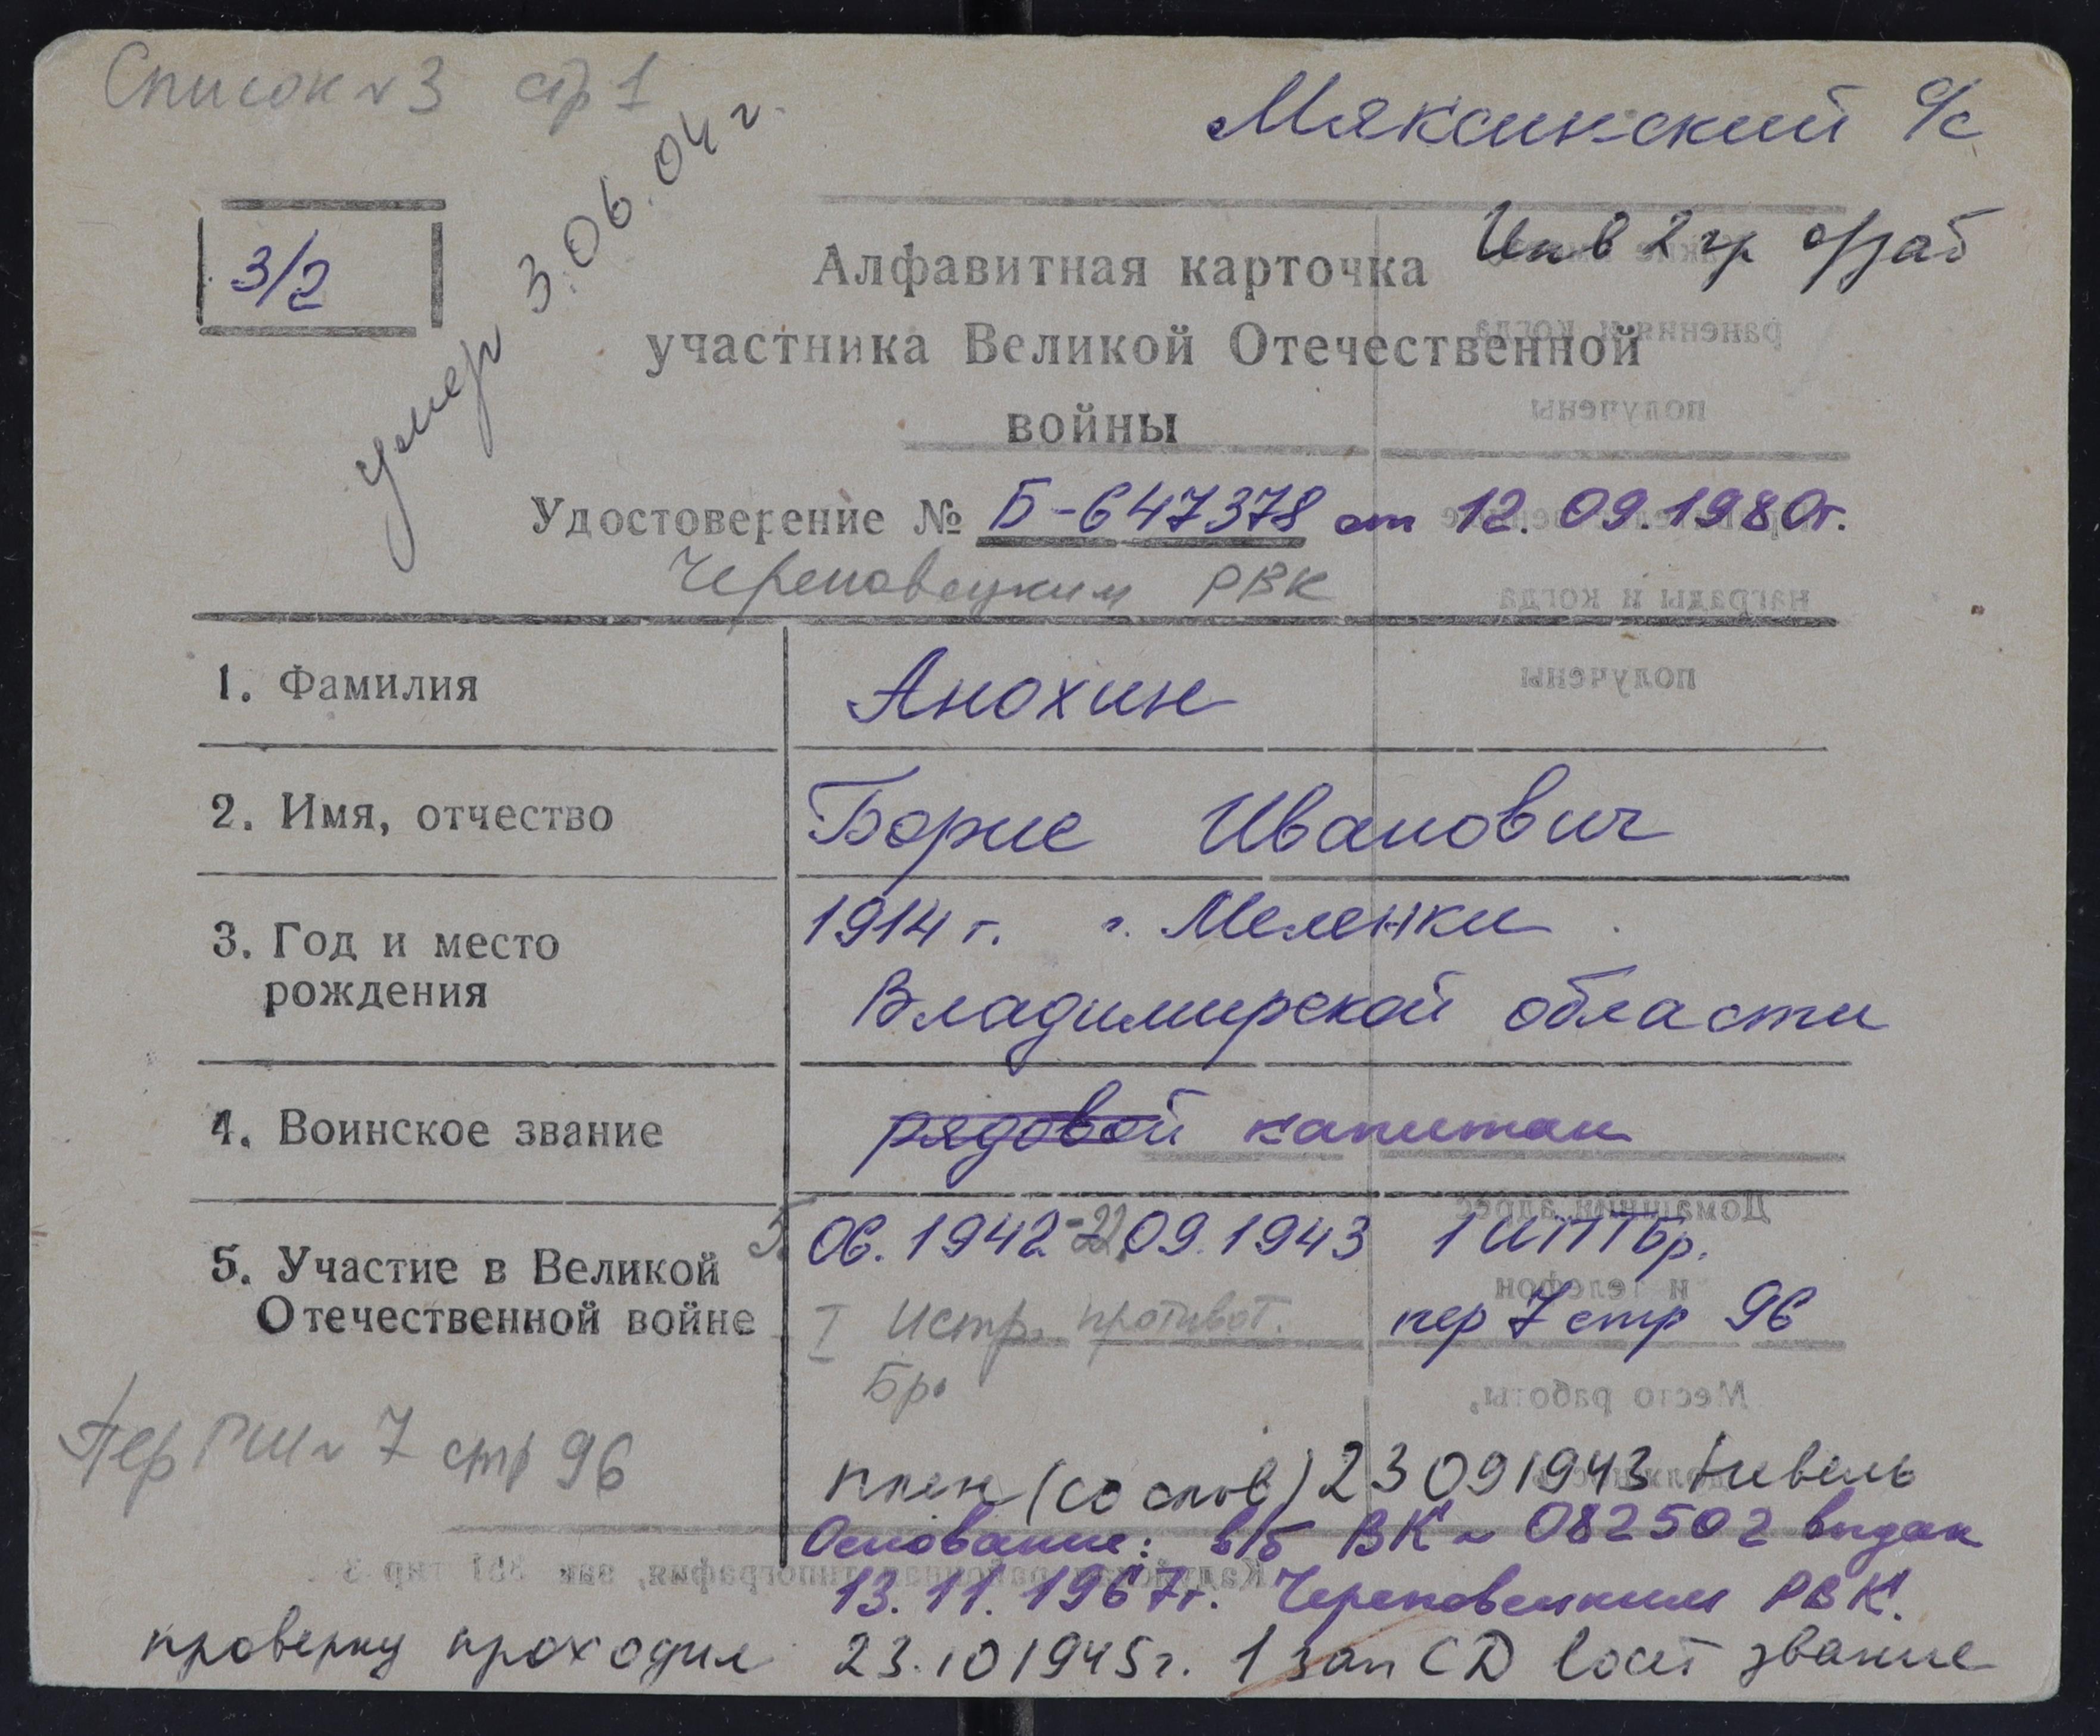 Список № 3 стр 1
Мяксинский с/с
3/2
умер 3.06.04 г.
Инв 2 гр о/заб
Алфавитная карточка
участника Великой Отечественной
войны
Удостоверение № Б-647378 от 12.09.1980г.
Череповецким РВК
1. Фамилия Анохин
2. Имя, отчество Борис Иванович
3. Год и место
рождения
1914 г. г. Меленки
Владимирской области
4. Воинское звание рядовой капитан
5. Участие в Великой
Отечественной войне
5. 06.1942 - 22.09.1943 1 ИПТБр.
I Истр. противот. пер 7 стр 96
Бр.
Пер ГШ № 7 стр 96
плен (со слов) 23 09 1943 Невель
Основание: в/б ВК № 082502 выдан
13.11.1967г. Череповецким РВК.
проверку проходил 23.10 1945г. 1 зап СД восст звание